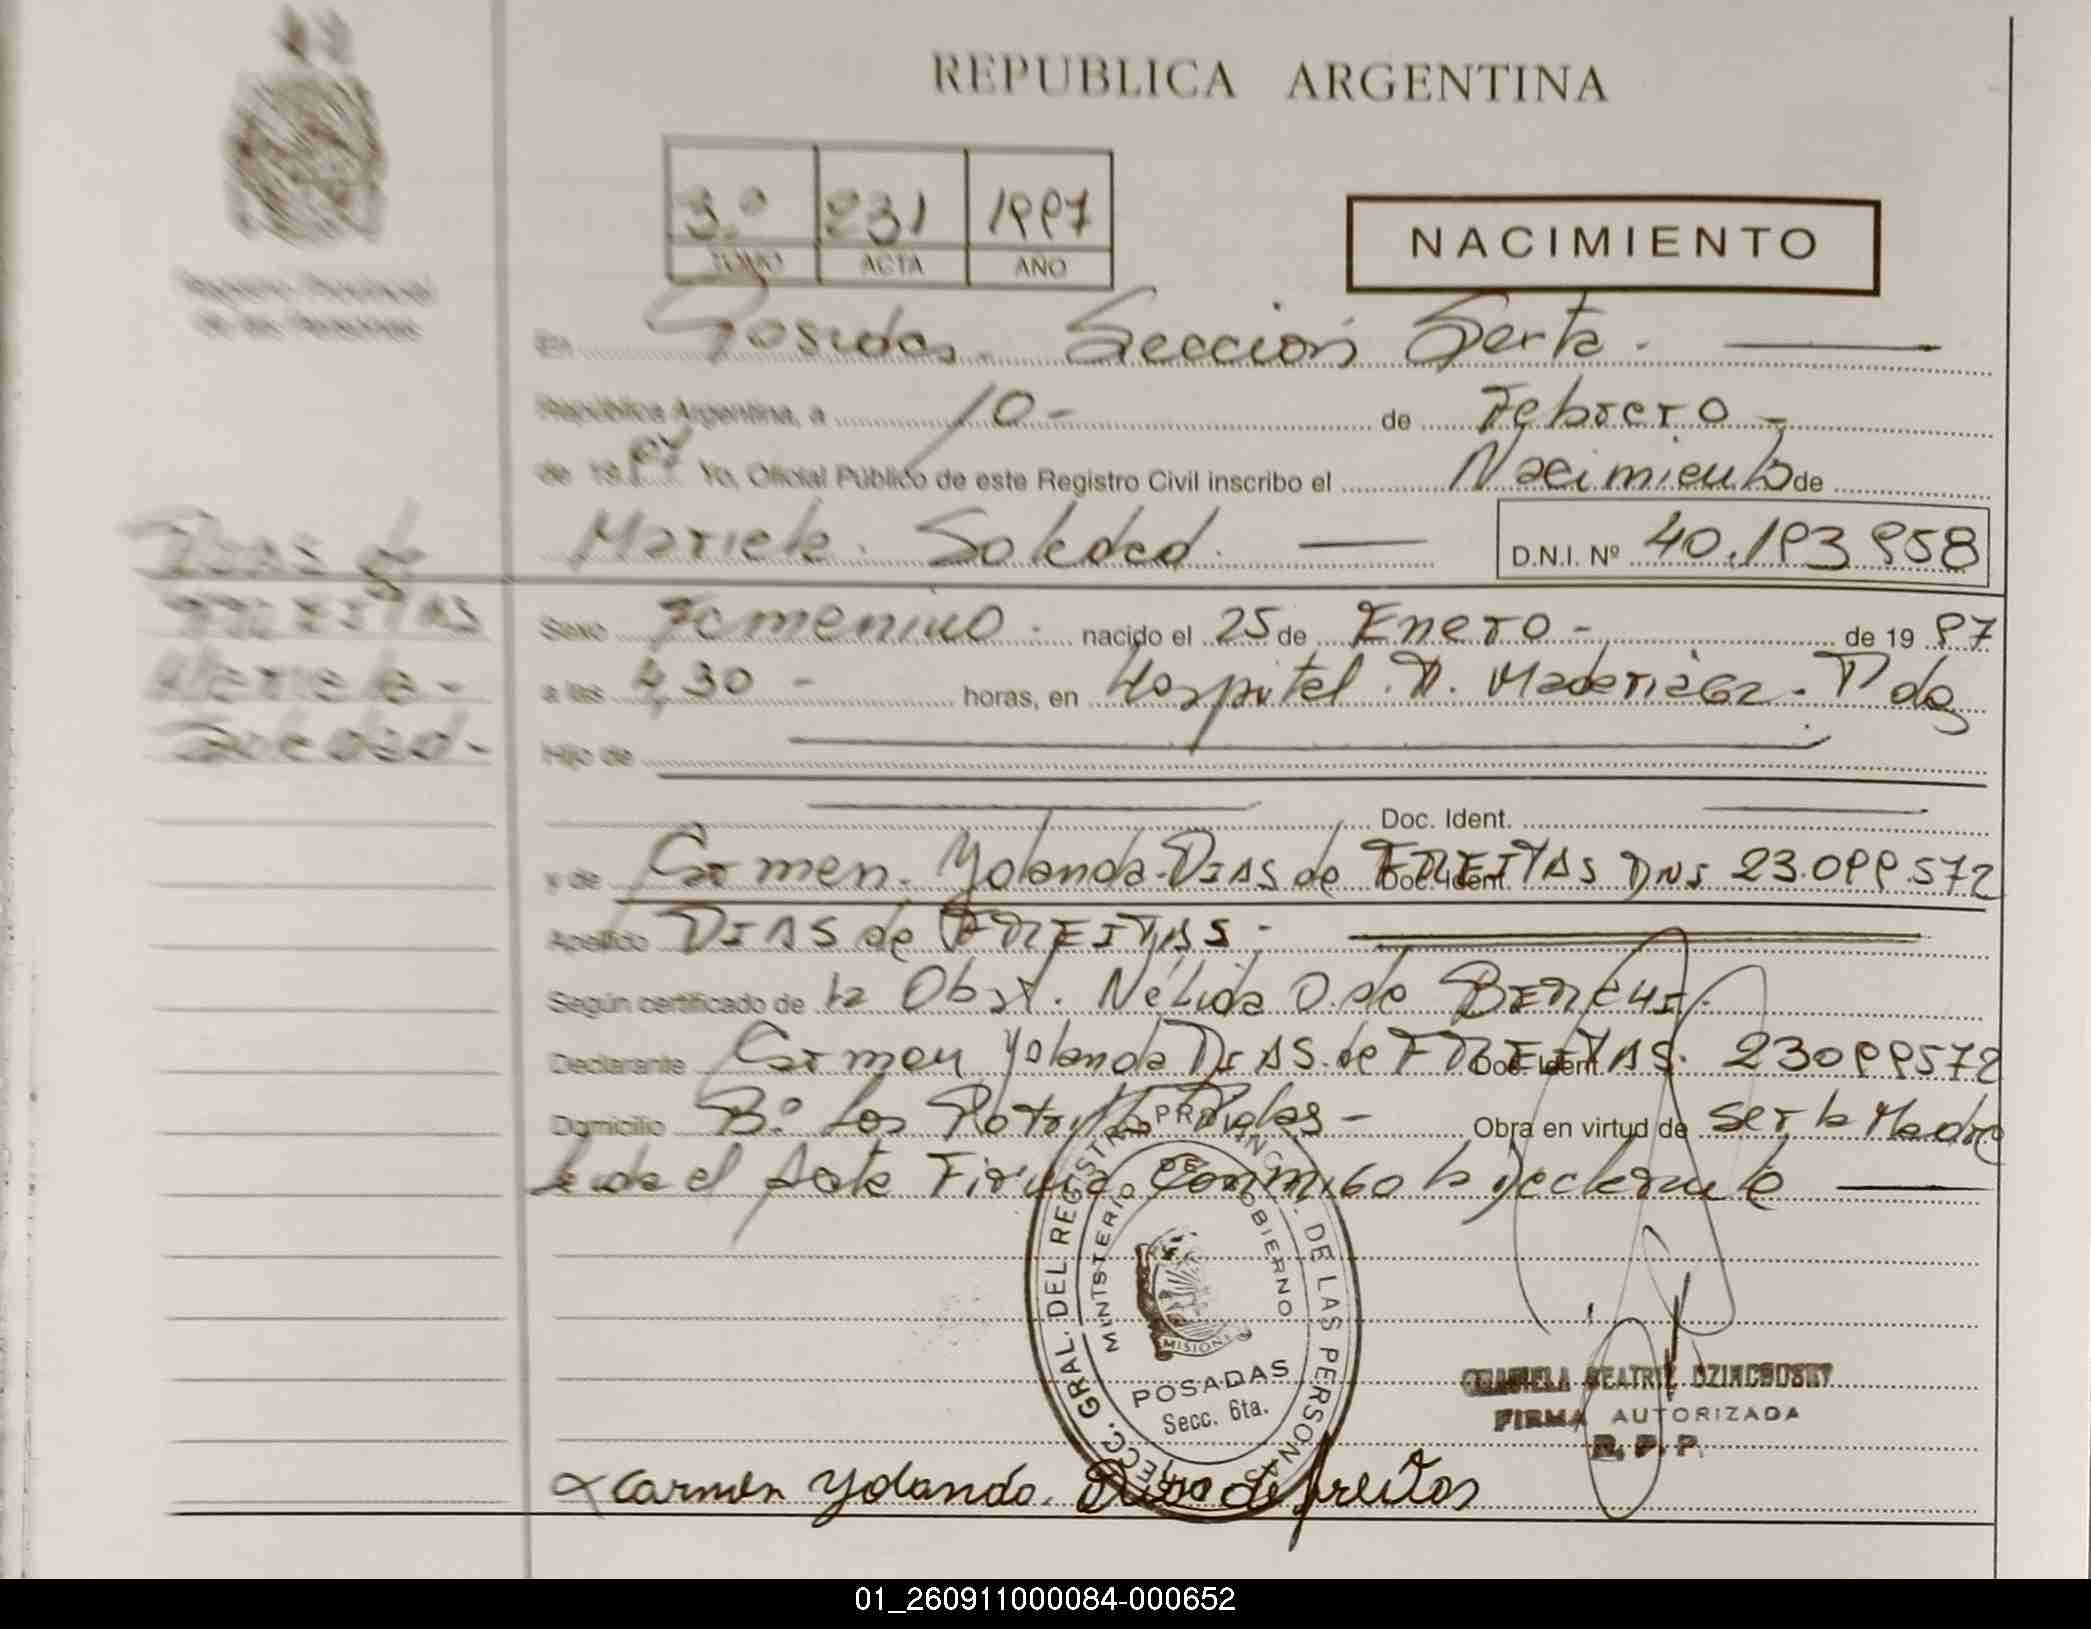 REPUBLICA ARGENTINA
3.º 231 1997
TOMO ACTA AÑO
NACIMIENTO
Registro Provincial
de las Personas
En Posadas. Sección Sexta.
República Argentina, a 10- de Febrero-
de 1997 Yo, Oficial Público de este Registro Civil inscribo el Nacimiento de
Mariela. Soledad. D.N.I. Nº 40.193.958
DIAS de
FREITAS
Mariela-
Soledad-
Sexo Femenino. nacido el 25 de Enero- de 1997
a las 4,30- horas, en Hospital. R. Madariaga. Pdas
Hijo de
Doc. Ident.
y de Carmen. Yolanda DIAS de FREITAS Doc. Ident. DNI 23.099.572
Apellido DIAS de FREITAS.-
Según certificado de la Obst. Nélida O. de
Declarante Carmen Yolanda DIAS de FREITAS. Doc. Ident. 23099572
Domicilio Bº Los Potrillos Pdas- Obra en virtud de ser la Madre
leida el Acta Firma Conmigo la Declarante
DIRECC. GRAL. DEL REGISTRO PROVINC. DE LAS PERSONAS
MINISTERIO DE GOBIERNO
MISIONES
POSADAS
Secc. 6ta.
GRACIELA BEATRIZ
FIRMA AUTORIZADA
R. P. P.
Carmen Yolanda. Dias de freitas
01_260911000084-000652